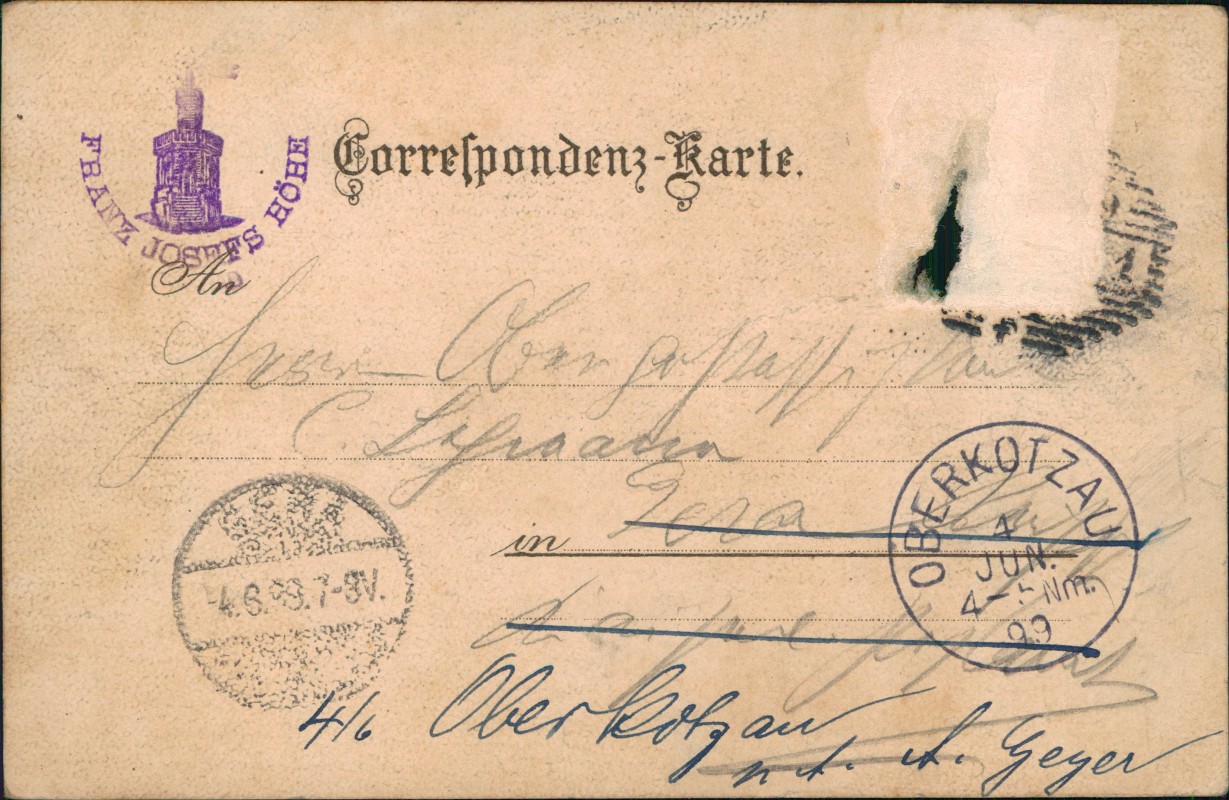 FRANZ JOSEFS HÖHE
Correspondenz-Karte.
An
Herrn
C. Lehmann
Gera
in
GERA
-4.6.99.7-8V.
OBERKOTZAU
4
JUN.
4-5Nm.
99
4/6 Oberkotzau
A. Geyer